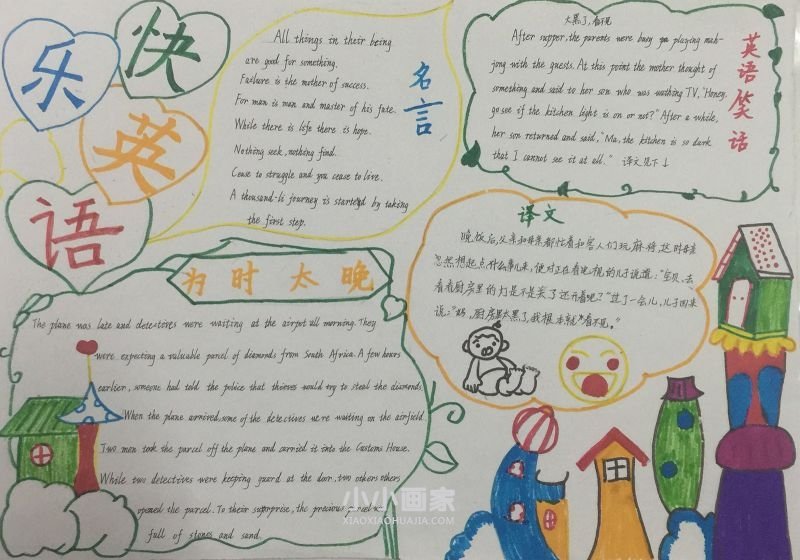 快
乐
英
语
All things in their being
are good for something.
Failure is the mother of success.
For man is man and master of his fate.
While there is life there is hope.
Nothing seek, nothing find.
Cease to struggle and you cease to live.
A thousand-li journey is started by taking
the first step.
名言
太黑了,看不见
After supper, the parents were busy playing mah-
jong with the guests. At this point the mother thought of
something and said to her son who was wathing TV, "Honey,
go see if the kitchen light is on or not?" After a while,
her son returned and said, "Ma, the kitchen is so dark
that I cannot see it at all." 译文见下↓
英语笑话
译文
晚饭后,父亲和母亲都忙着和客人们玩麻将,这时母亲
忽然想起点什么事儿来,便对正在看电视的儿子说道:"宝贝,去
看看厨房里的灯是不是关了还开着呢?"过了一会儿,儿子回来
说:"妈,厨房里太黑了,我根本就看不见。"
为时太晚
The plane was late and detectives were waiting at the airport all morning. They
were expecting a valuable parcel of diamonds from South Africa. A few hours
earlier, someone had told the police that thieves would try to steal the diamonds.
When the plane arrived, some of the detectives were waiting on the airfield.
Two men took the parcel off the plane and carried it into the Customs House.
While two detectives were keeping guard at the door, two others others
opened the parcel. To their suprprise, the precious parcel
full of stones and sand.
小小画家
XIAOXIAOHUAJIA.COM